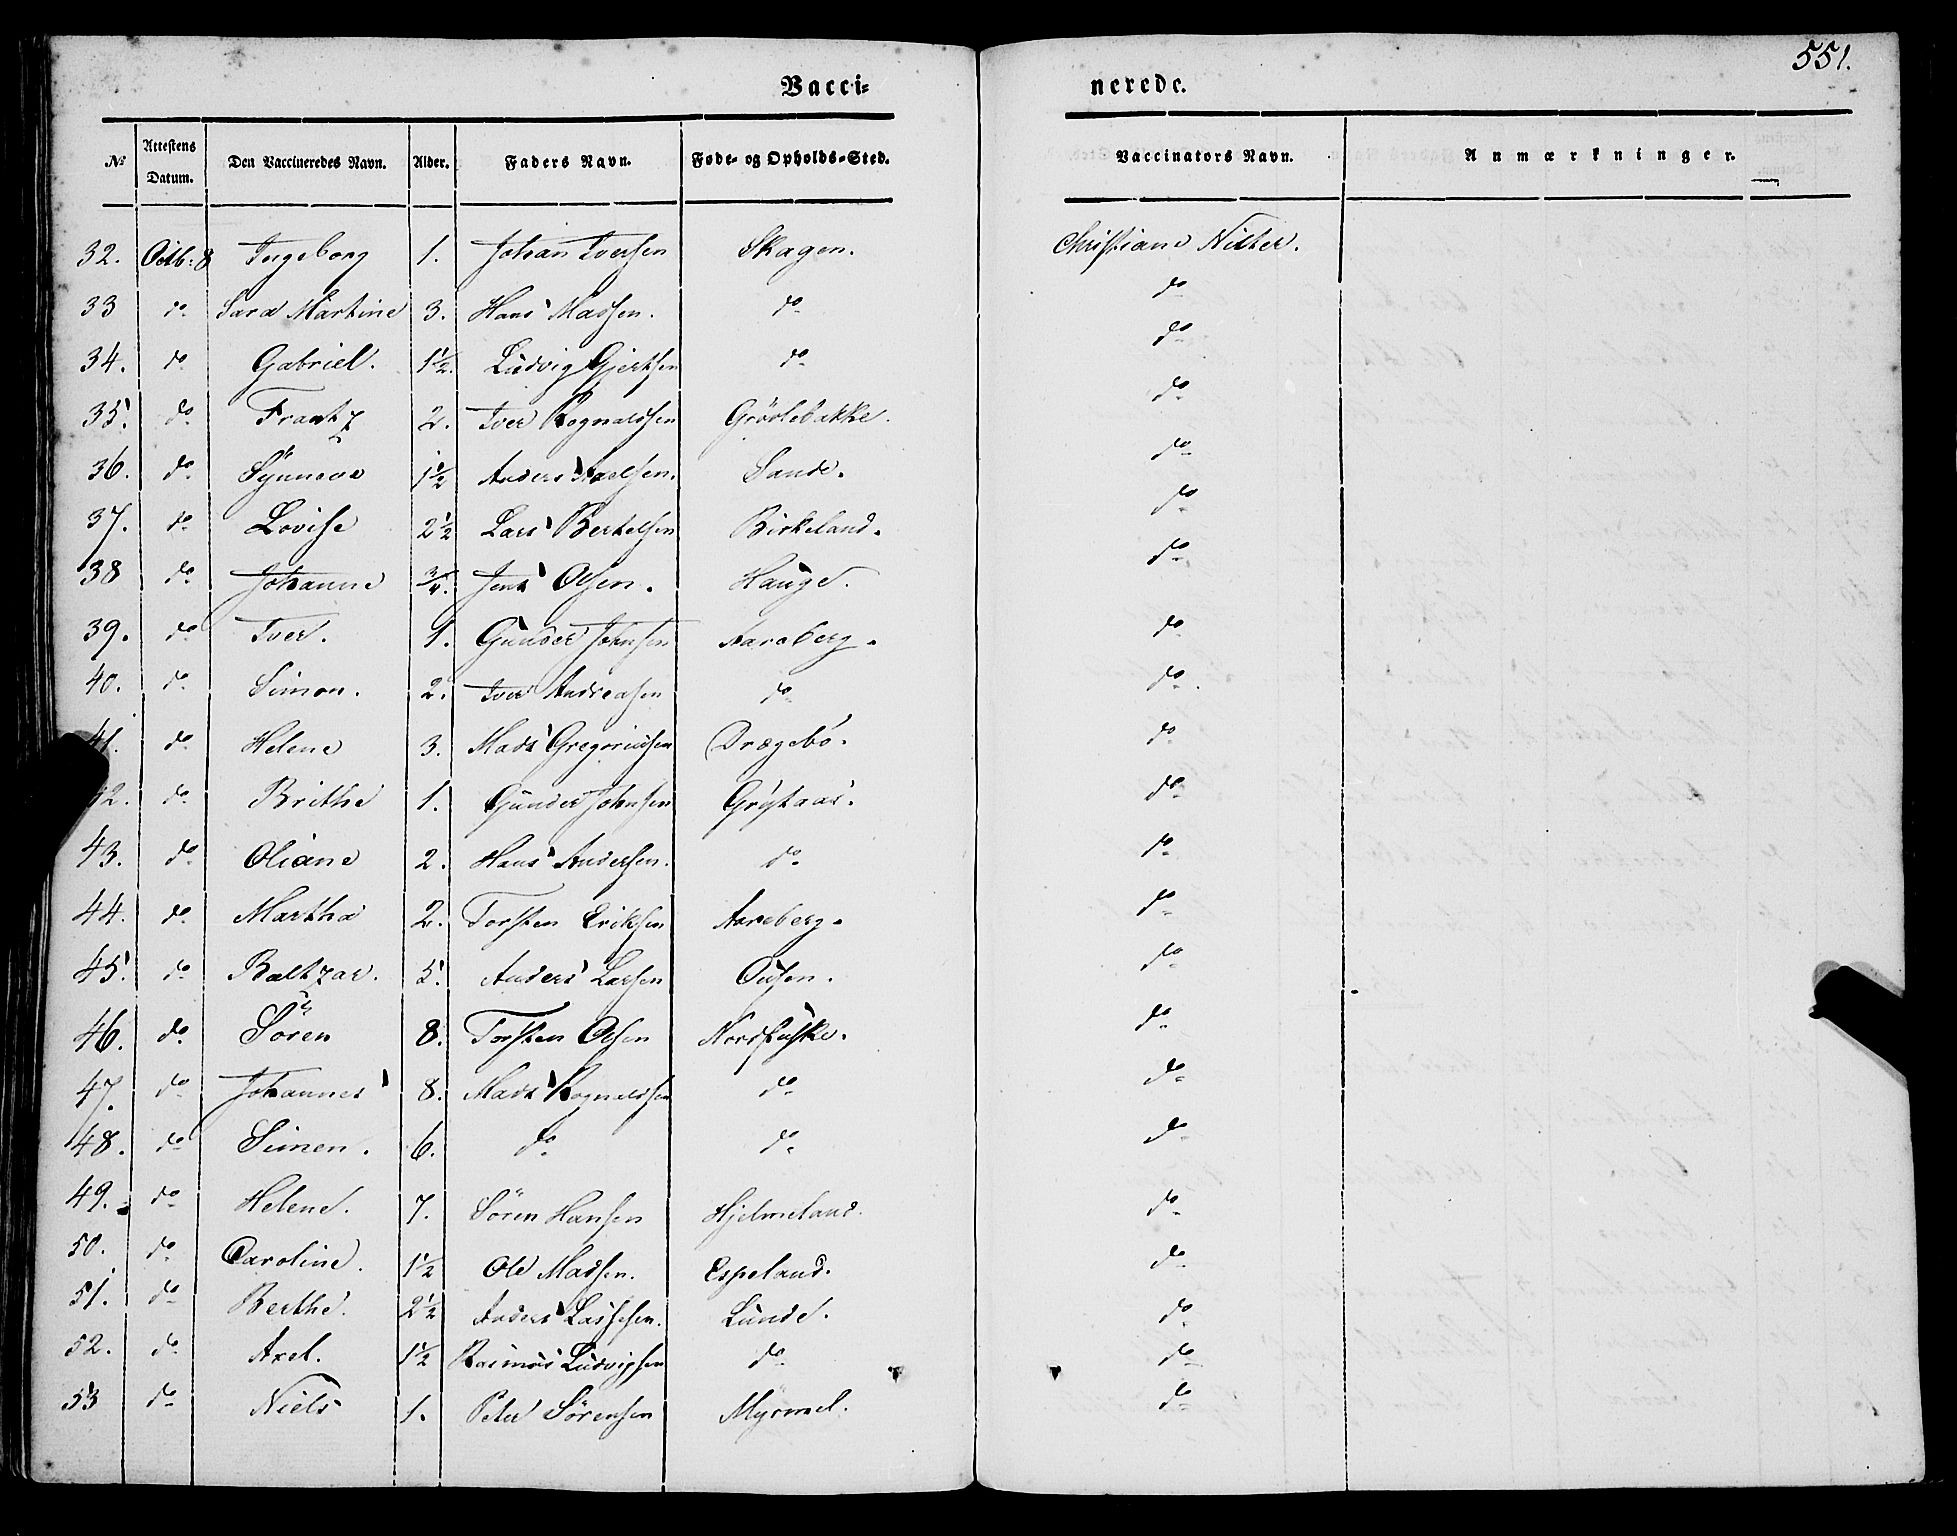 551.
Vacci- nerede.
№ Attestens Datum. Den Vaccineredes Navn. Alder. Faders Navn. Føde- og Opholds-Sted. Vaccinators Navn. Anmærkninger.
32. Octb: 8 Ingeborg 1. Johan Iversen Skagen. Christiane Nitter.
33 do Sara Martine 3. Hans Madsen. do do
34. do Gabriel. 1½. Ludvig Gjertsen do do
35. do Frantz 2. Iver Rognaldsen Grøslebakke. do
36. do Synneve 1½ Anders Axelsen. Sande. do
37. do Lovise 2½ Lars Bertelsen Birkeland. do
38 do Johanne ¾. Jens Olsen. Hauge. do
39. do Iver. 1. Gunder Johnsen Aareberg. do
40. do Simon. 2. Iver Andreasen do do
41. do Helene 3. Mads Gregoriussen Drægebø. do
42. do Brithe 1. Gunder Johnsen Grytaas. do
43. do Oliane 2. Hans Andersen. do do
44. do Martha 2. Torsten Eriksen Aareberg. do
45. do Baltzar. 5. Anders Larsen Ousen. do
46. do Sören 8. Torsten Olsen do
47. do Johannes 8. Mads Rognaldsen do do
48. do Simen. 6. do do do
49. do Helene. 7. Sören Hansen Hjelmeland. do
50. do Caroline. 1½ Ole Madsen. Espeland. do
51. do Berthe. 2½ Anders Lassesen. Lunde. do
52. do Axel. 1½ Rasmus Ludvigsen do do
53 do Niels 1. Peter Sörensen Myrmel. do